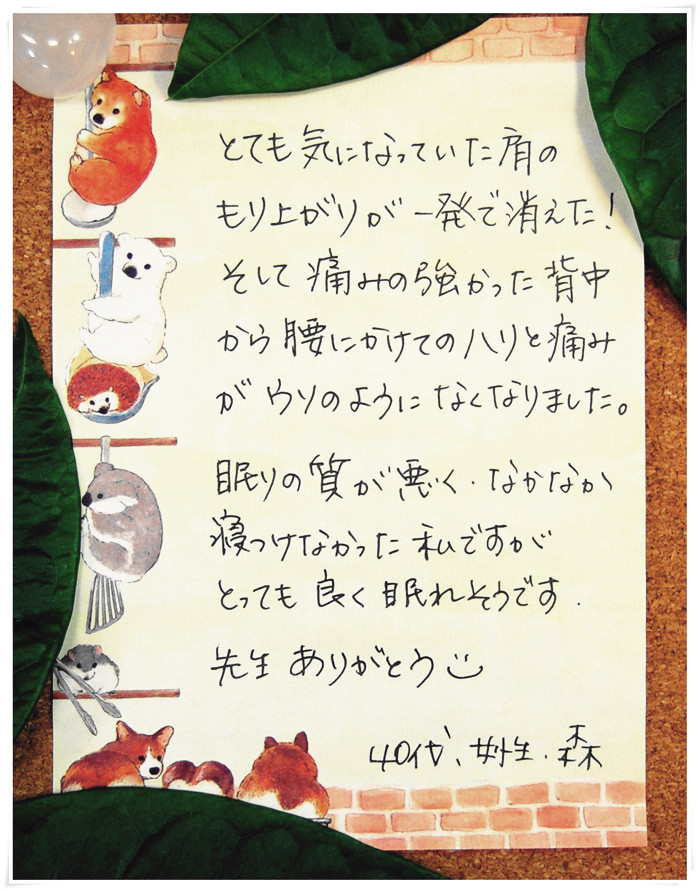 とても気になっていた肩の
もり上がりが一発で消えた!
そして痛みの強かった背中
から腰にかけてのハリと痛み
がウソのようになくなりました。
眠りの質が悪く、なかなか
寝つけなかった私ですが
とっても良く眠れそうです.
先生ありがとう
40代、女性、森